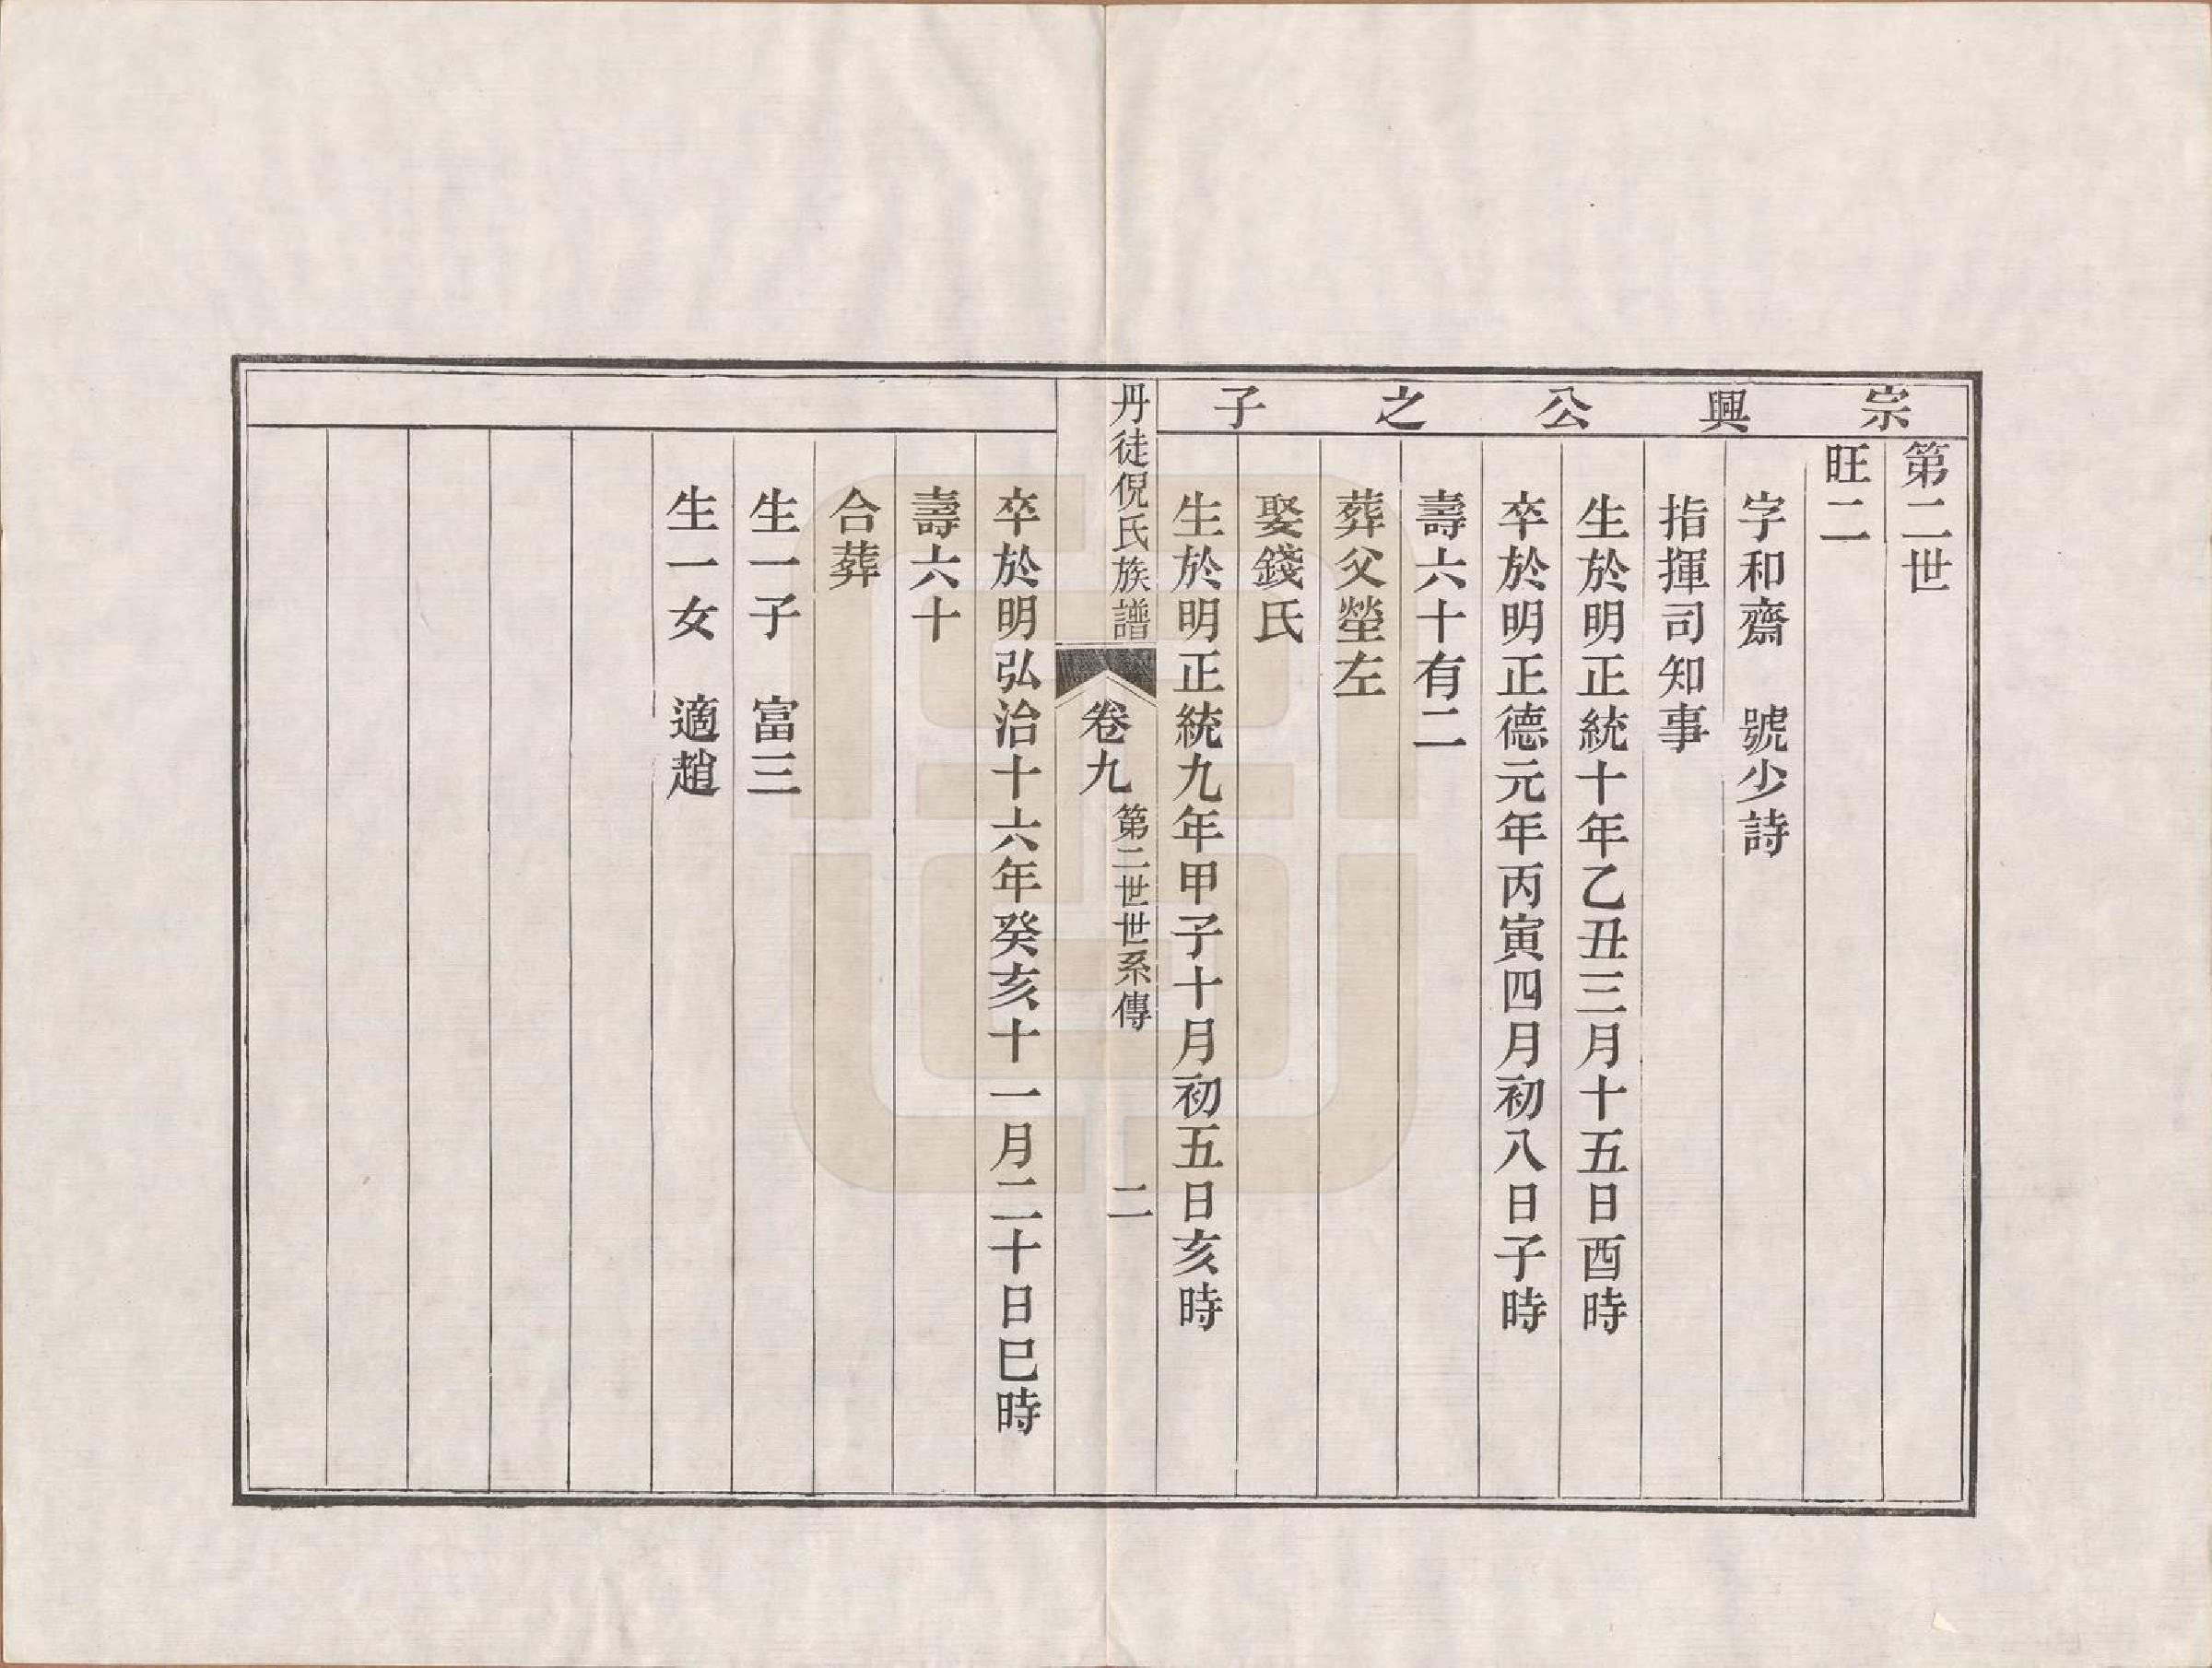 宗興公之子
第二世
旺二
字和齋　號少詩
指揮司知事
生於明正統十年乙丑三月十五日酉時
卒於明正德元年丙寅四月初八日子時
壽六十有二
葬父塋左
娶錢氏
生於明正統九年甲子十月初五日亥時
丹徒倪氏族譜　卷九　第二世世系傳　二
卒於明弘治十六年癸亥十一月二十日巳時
壽六十
合葬
生一子　富三
生一女　適趙